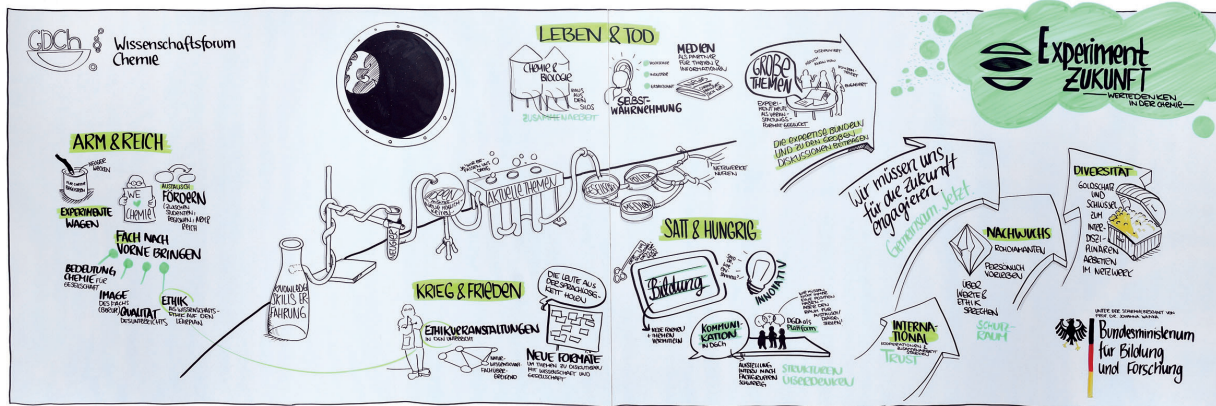 GDCh
Wissenschaftsforum
Chemie
ARM & REICH
EXPERIMENTE
WAGEN
WE
CHEMIE!
AUSTAUSCH
FÖRDERN
FACH NACH
VORNE BRINGEN
BEDEUTUNG
CHEMIE FÜR
GESELLSCHAFT
IMAGE
DES FACHS
QUALITÄT
DES UNTERRICHTS
ETHIK
ALS WISSENSCHAFTS-
ETHIK AUF DEN
LEHRPLAN
KNOWLEDGE
SKILLS ER
FAHRUNG
AKTUELLE THEMEN
MEDIEN
NETZWERKE
NUTZEN
LEBEN & TOD
CHEMIE &
BIOLOGIE
RAUS
AUS
DEN
SILOS
ZUSAMMENARBEIT
SELBST-
WAHRNEHMUNG
MEDIEN
ALS PARTNER
FÜR THEMEN &
INFORMATIONEN
GROßE
THEMEN
EXPERI-
MENT HEUTE
ALS VERAN-
STALTUNGS-
FORMAT GEGLÜCKT
DIE EXPERTISE BÜNDELN
UND ZU DEN GROßEN
DISKUSSIONEN BEITRAGEN
KRIEG & FRIEDEN
ETHIKVERANSTALTUNGEN
IN DEN UNTERRICHT
NATUR-
WISSENSCHAFT
FACHÜBER-
GREIFEND
DIE LEUTE AUS
DER SPRACHLOSIG-
KEIT HOLEN
NEUE FORMATE
UM THEMEN ZU DISKUTIEREN
MIT WISSENSCHAFT UND
GESELLSCHAFT
SATT & HUNGRIG
Bildung
NEUE FORMEN
THEMEN
VERMITTELN
INNOVATIV
KOMMUNI-
KATION
IN DGCh
DGCh als
Plattform
AUFSTELLUNG
INTERN NACH
FACHGRUPPEN
SCHWIERIG
STRUKTUREN
ÜBERDENKEN
Wir müssen uns
für die Zukunft
engagieren.
Gemeinsam. Jetzt.
INTERNA-
TIONAL
TRUST
NACHWUCHS
ROHDIAMANTEN
PERSÖNLICH
VORLEBEN
ÜBER
WERTE &
ETHIK
SPRECHEN
SCHUTZ-
RAUM
DIVERSITÄT
GOLDSCHATZ
UND
SCHLÜSSEL
ZUM
INTER-
DISZI-
PLINÄREN
ARBEITEN
IM NETZWERK
Experiment
ZUKUNFT
WERTEDENKEN
IN DER CHEMIE
UNTER DER SCHIRMHERRSCHAFT VON
PROF. DR. JOHANNA WANKA
Bundesministerium
für Bildung
und Forschung